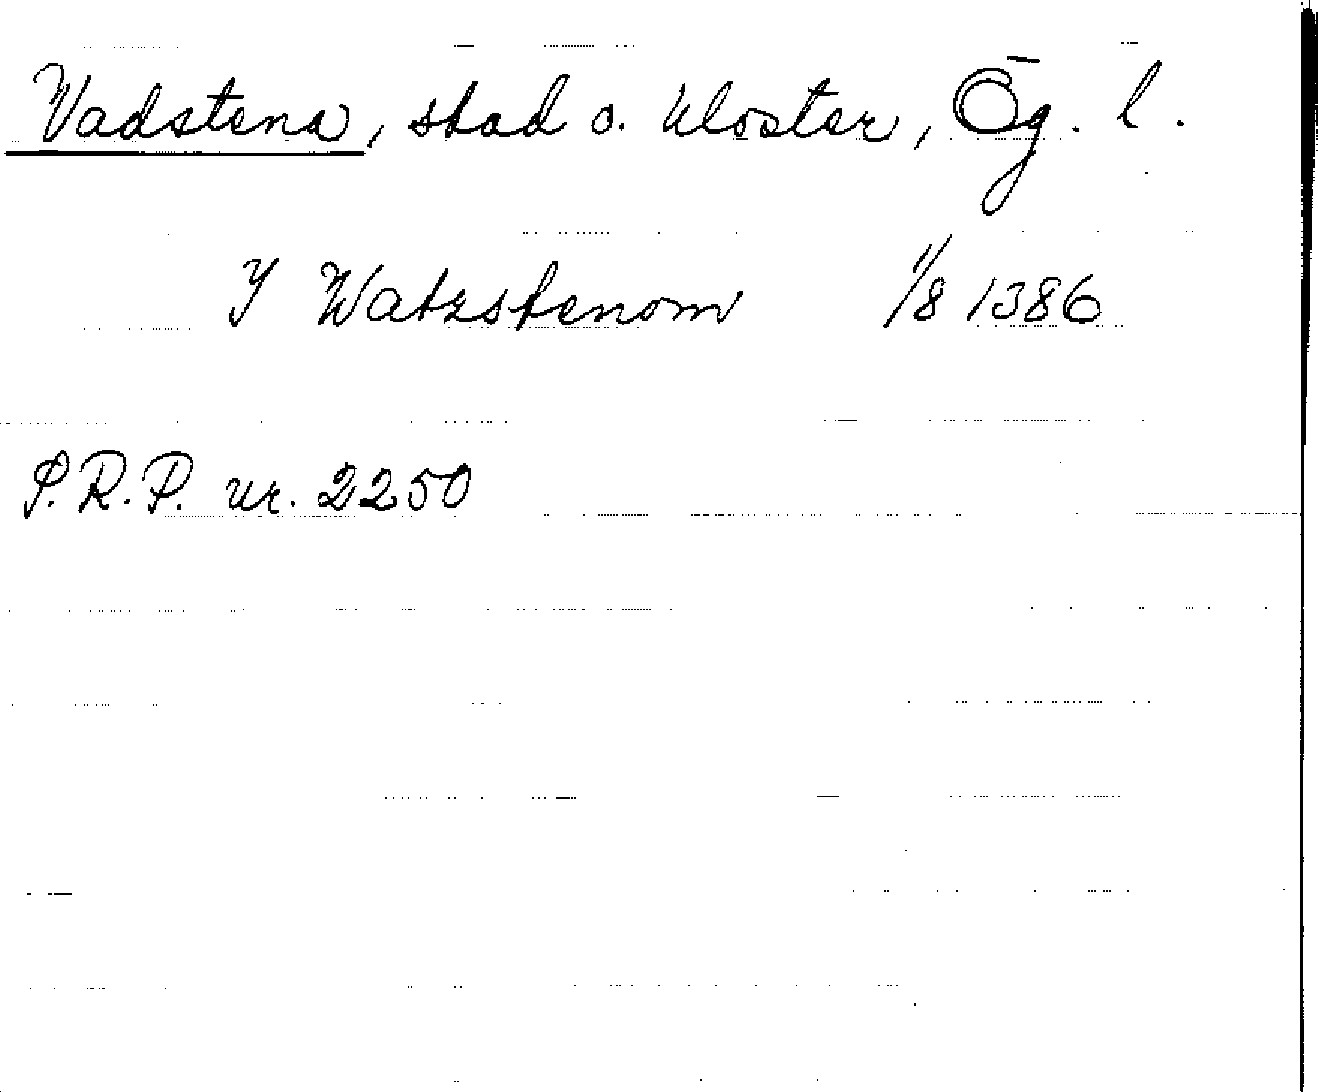 Vadstena, stad o. kloster, Ög. l.
Y Watzstenom 11/8 1386
S.R.P. nr. 2250